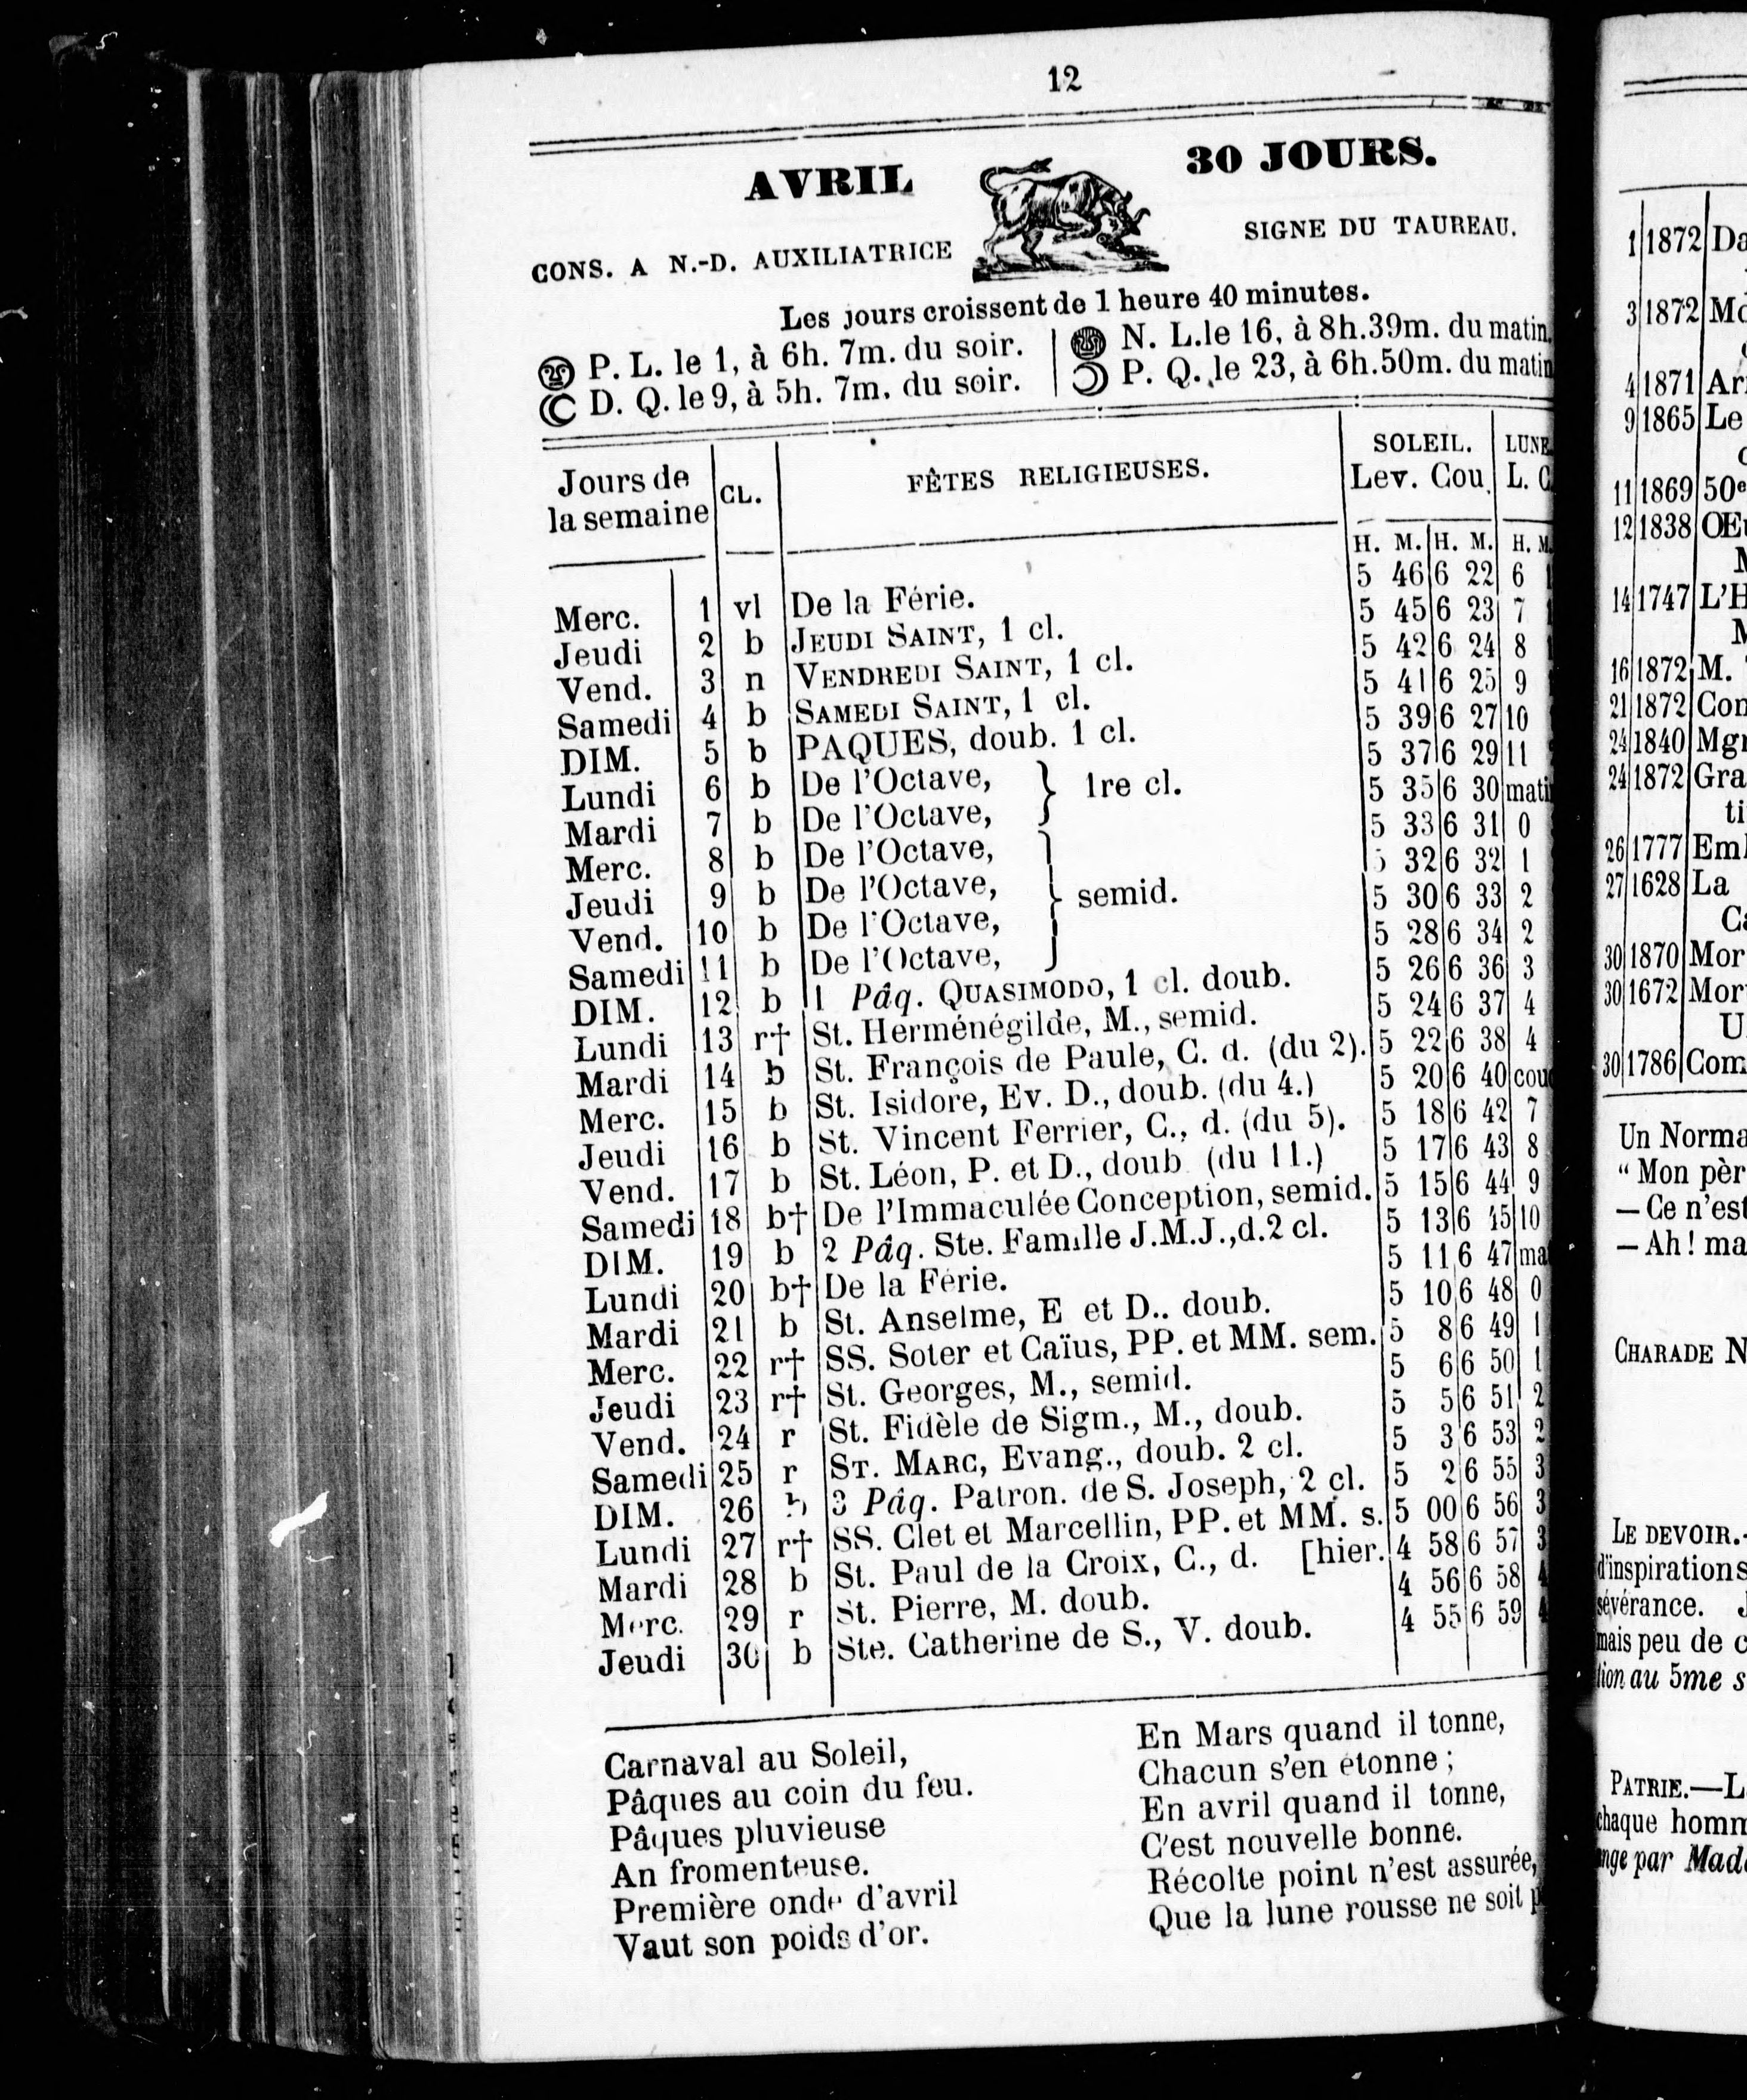 12
AVRIL 30 JOURS.
CONS. A N.-D. AUXILIATRICE SIGNE DU TAUREAU.
Les jours croissent de 1 heure 40 minutes.
P. L. le 1, à 6h. 7m. du soir. N. L. le 16, à 8h.39m. du matin.
D. Q. le 9, à 5h. 7m. du soir. P. Q. le 23, à 6h.50m. du matin
Jours de la semaine CL. FÊTES RELIGIEUSES. SOLEIL. Lev. Cou. LUNE. L. C.
H. M. H. M. H. M.
Merc. 1 vl De la Férie. 5 46 6 22 6
Jeudi 2 b JEUDI SAINT, 1 cl. 5 45 6 23 7
Vend. 3 n VENDREDI SAINT, 1 cl. 5 42 6 24 8
Samedi 4 b SAMEDI SAINT, 1 cl. 5 41 6 25 9
DIM. 5 b PAQUES, doub. 1 cl. 5 39 6 27 10
Lundi 6 b De l'Octave, 1re cl. 5 37 6 29 11
Mardi 7 b De l'Octave, 5 35 6 30 mati
Merc. 8 b De l'Octave, 5 33 6 31 0
Jeudi 9 b De l'Octave, semid. 5 32 6 32 1
Vend. 10 b De l'Octave, 5 30 6 33 2
Samedi 11 b De l'Octave, 5 28 6 34 2
DIM. 12 b 1 Pâq. QUASIMODO, 1 cl. doub. 5 26 6 36 3
Lundi 13 r† St. Herménégilde, M., semid. 5 24 6 37 4
Mardi 14 b St. François de Paule, C. d. (du 2). 5 22 6 38 4
Merc. 15 b St. Isidore, Ev. D., doub. (du 4.) 5 20 6 40 cou
Jeudi 16 b St. Vincent Ferrier, C., d. (du 5). 5 18 6 42 7
Vend. 17 b St. Léon, P. et D., doub. (du 11.) 5 17 6 43 8
Samedi 18 b† De l'Immaculée Conception, semid. 5 15 6 44 9
DIM. 19 b 2 Pâq. Ste. Famille J.M.J., d.2 cl. 5 13 6 45 10
Lundi 20 b† De la Férie. 5 11 6 47 ma
Mardi 21 b St. Anselme, E et D.. doub. 5 10 6 48 0
Merc. 22 r† SS. Soter et Caïus, PP. et MM. sem. 5 8 6 49 1
Jeudi 23 r† St. Georges, M., semid. 5 6 6 50 1
Vend. 24 r St. Fidèle de Sigm., M., doub. 5 5 6 51 2
Samedi 25 r ST. MARC, Evang., doub. 2 cl. 5 3 6 53 2
DIM. 26 b 3 Pâq. Patron. de S. Joseph, 2 cl. 5 2 6 55 3
Lundi 27 r† SS. Clet et Marcellin, PP. et MM. s. 5 00 6 56 3
Mardi 28 b St. Paul de la Croix, C., d. [hier. 4 58 6 57 3
Merc. 29 r St. Pierre, M. doub. 4 56 6 58 4
Jeudi 30 b Ste. Catherine de S., V. doub. 4 55 6 59 4
Carnaval au Soleil,
Pâques au coin du feu.
Pâques pluvieuse
An fromenteuse.
Première onde d'avril
Vaut son poids d'or.
En Mars quand il tonne,
Chacun s'en étonne ;
En avril quand il tonne,
C'est nouvelle bonne.
Récolte point n'est assurée,
Que la lune rousse ne soit
1 1872 Da
3 1872 Mo
4 1871 Ar
9 1865 Le
11 1869 50e
12 1838 Œu
M
14 1747 L'H
M
16 1872 M.
21 1872 Con
24 1840 Mgr
24 1872 Gra
ti
26 1777 Eml
27 1628 La
Ca
30 1870 Mor
30 1672 Mor
U
30 1786 Com
Un Norma
" Mon pèr
— Ce n'est
— Ah ! ma
CHARADE N
LE DEVOIR.
d'inspirations
sévérance.
mais peu de c
tion au 5me s
PATRIE.—L
chaque homm
ange par Mad